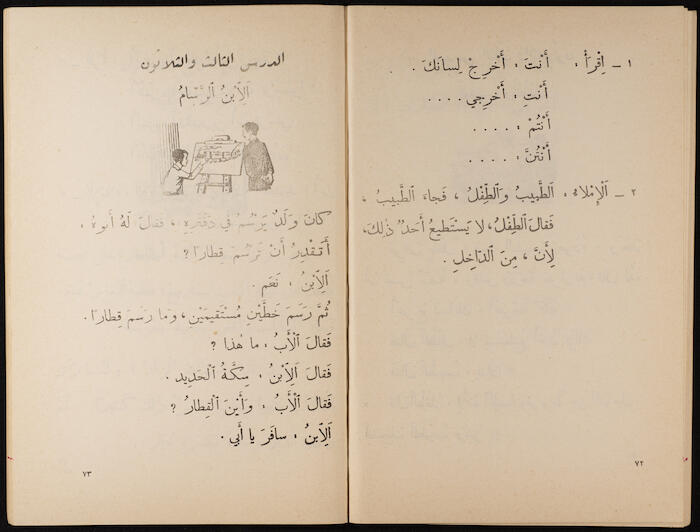 ١ ـ اِقْرَأْ : أَنْتَ : أَخْرِجْ لِسانَكَ .
أَنْتِ : أَخْرِجي . . . .
أَنْتُمْ : . . . .
أَنْتُنَّ : . . . .
٢ ـ اَلْإِمْلاءُ : اَلطَّبيبُ وَالطِّفْلُ ، فَجاءَ الطَّبيبُ ،
فَقالَ الطِّفْلُ ، لا يَسْتَطيعُ أَحَدٌ ذٰلِكَ،
لِأَنَّ ، مِنَ الدّاخِلِ .
٧٢
الدرس الثالث والثلاثون
اَلْاِبْنُ الرَّسّامُ
كانَ وَلَدٌ يَرْسُمُ في دَفْتَرِهِ ، فَقالَ لَهُ أَبوهُ :
أَتَقْدِرُ أَنْ تَرْسُمَ قِطارًا ؟
اَلْاِبْنُ : نَعَم .
ثُمَّ رَسَمَ خَطَّيْنِ مُسْتَقيمَيْنِ ، وَما رَسَمَ قِطارًا .
فَقالَ الْأَبُ : ما هٰذا ؟
فَقالَ الْاِبْنُ : سِكَّةُ الْحَديد .
فَقالَ الْأَبُ : وَأَيْنَ الْقِطارُ ؟
اَلْاِبْنُ : سافَرَ يا أَبي .
٧٣